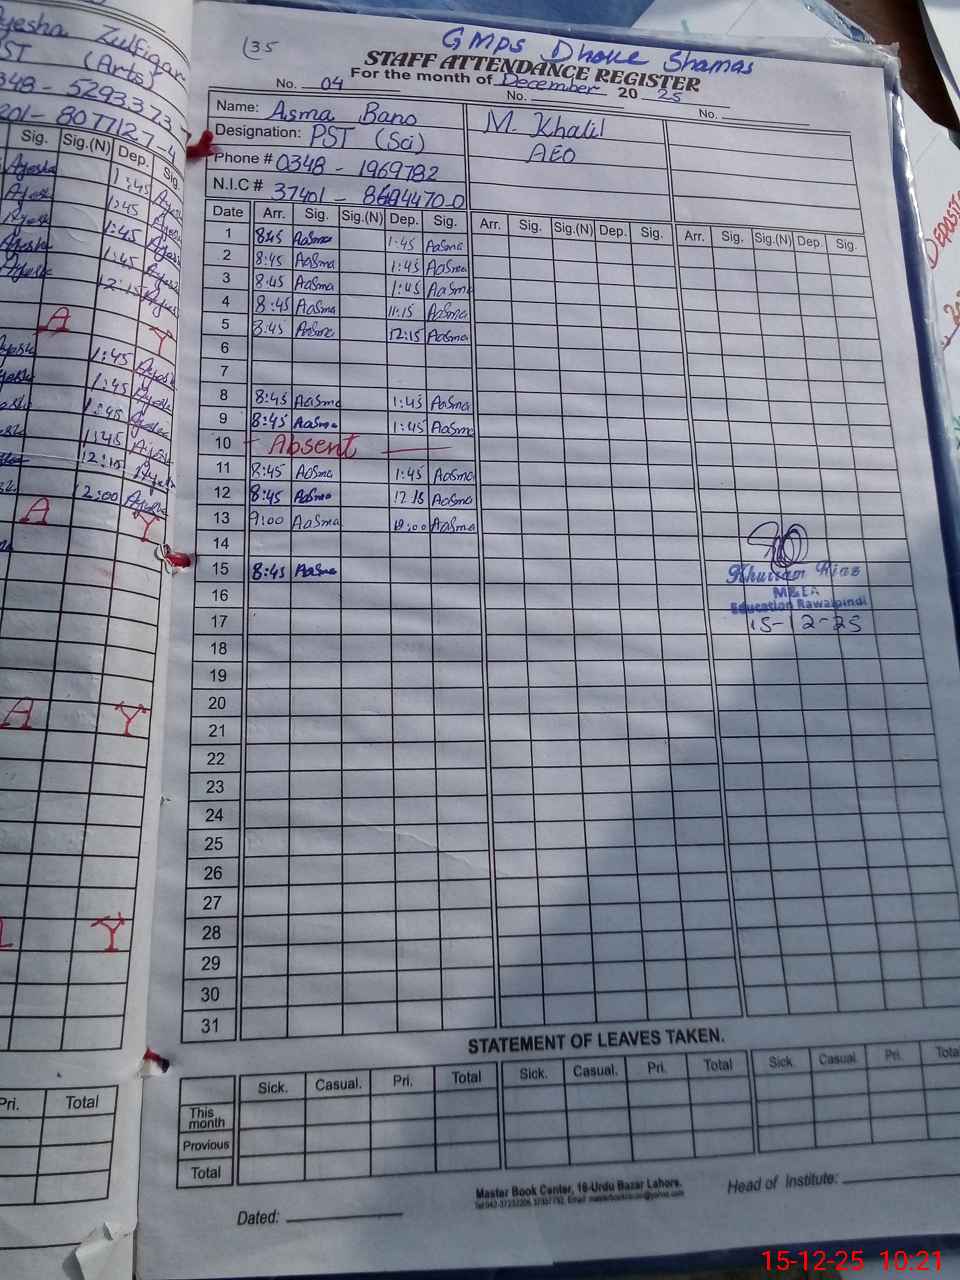 Ayesha Zulfiqar
PST (Arts)
0348 - 5293373
201 - 8077127-4
Sig. Sig.(N) Dep. Sig.
Ayesha 1:45
1:45
1:45
1:45
12:15
A Y
1:45
1:45
1:45
1:45
12:15
12:00
A Y
A Y
Y
Pri. Total
(35
GMPS Dhoke Shamas
STAFF ATTENDANCE REGISTER
For the month of December 20 25
No. 04 No. No.
Name: Asma Bano M. Khalil
Designation: PST (Sci) AEO
Phone # 0348 - 1969782
N.I.C # 37401 -
Date Arr. Sig. Sig.(N) Dep. Sig. Arr. Sig. Sig.(N) Dep. Sig. Arr. Sig. Sig.(N) Dep. Sig.
1 8:45 AaSma 1:45 AaSma
2 8:45 AaSma 1:45 AaSma
3 8:45 AaSma 1:45 AaSma
4 8:45 AaSma 11:15 AaSma
5 8:45 AaSma 12:15 AaSma
6
7
8 8:45 AaSma 1:45 AaSma
9 8:45 AaSma 1:45 AaSma
10 Absent
11 8:45 AaSma 1:45 AaSma
12 8:45 AaSma 12:15 AaSma
13 9:00 AaSma 12:00 AaSma
14
15 8:45 AaSma
16
17
18
19
20
21
22
23
24
25
26
27
28
29
30
31
Khurram Riaz
MEA
Education Rawalpindi
15-12-25
STATEMENT OF LEAVES TAKEN.
Sick. Casual. Pri. Total Sick. Casual. Pri. Total Sick. Casual. Pri. Total
This month
Previous
Total
Master Book Center, 16-Urdu Bazar Lahore.
Dated:
Head of Institute:
15-12-25 10:21